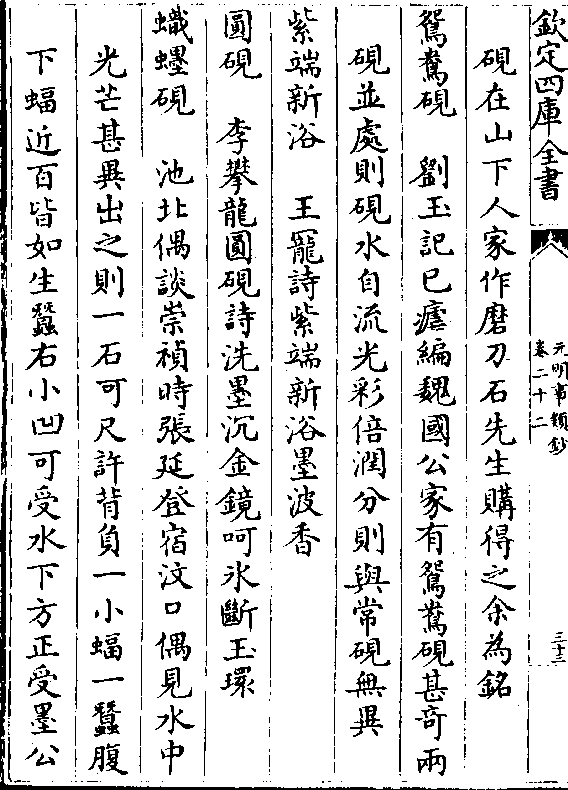 欽定四庫全書
元明事類鈔
卷二十二
三十三
硯在山下人家作磨刀石先生購得之余為銘
鴛鴦硯　劉玉記已瘧編魏國公家有鴛鴦硯甚奇兩
硯並處則硯水自流光彩倍潤分則與常硯無異
紫端新浴　王寵詩紫端新浴墨波香
圓硯　李攀龍圓硯詩洗墨沉金鏡呵氷斷玉環
蟙䘃硯　池北偶談崇禎時張延登宿汶口偶見水中
光芒甚異出之則一石可尺許背負一小蝠一蠶腹
下蝠近百皆如生蠶右小凹可受水下方正受墨公